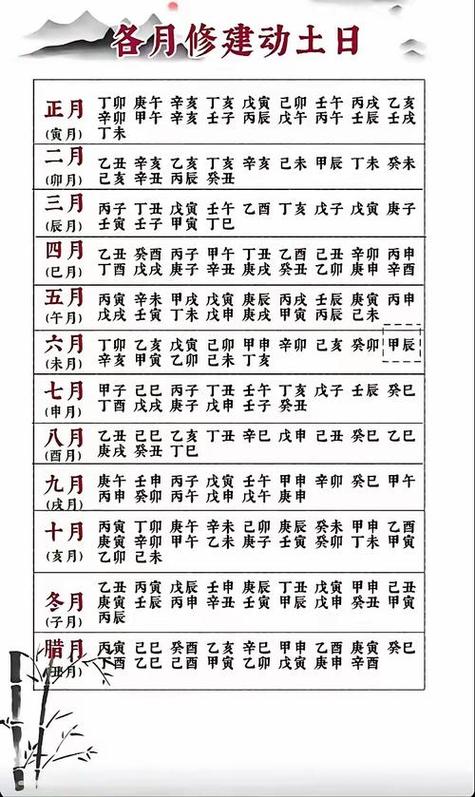 各月修建动土日
正月 丁卯 庚午 辛亥 丁亥 戊寅 己卯 壬午 丙戌 乙亥
(寅月) 辛卯 甲午 辛亥 壬子 丙辰 戊午 丙午 壬辰 壬戌
丁未
二月 乙丑 辛亥 乙亥 丁亥 辛亥 己未 甲辰 丁未 癸未
(卯月) 己亥 辛丑 丙辰 癸丑
三月 丙子 丁丑 戊寅 壬午 乙酉 丁亥 戊子 戊寅 庚子
(辰月) 壬寅 壬子 甲寅 丁巳
四月 乙丑 癸酉 丙子 甲午 丁丑 乙酉 己丑 辛卯 丙申
(巳月) 丁酉 戊戌 庚子 辛丑 庚戌 癸丑 乙卯 庚申 辛酉
五月 丙寅 辛未 甲戌 戊寅 庚辰 丙戌 壬辰 庚寅 丙申
(午月) 戊戌 壬寅 丁未 戊申 庚戌 甲寅 丙辰 己未
六月 丁卯 乙亥 戊寅 己卯 甲申 辛卯 己亥 癸卯 甲辰
(未月) 辛亥 甲寅 乙卯 己未 丁亥
七月 甲子 己巳 丙子 丁丑 壬午 丁亥 戊子 壬辰 癸巳
(申月) 丁酉 戊戌 庚子 戊申 壬子 癸丑
八月 乙丑 己巳 乙亥 丁丑 辛巳 戊申 己丑 癸巳 乙巳
(酉月) 庚戌 癸丑 丁巳
九月 庚午 壬申 丙子 戊寅 壬午 甲申 辛卯 癸巳 甲午
(戌月) 丙申 癸卯 丙午 戊申 戊午 庚申
十月 丙寅 丁卯 庚午 辛未 己卯 庚辰 癸未 甲申 乙酉
(亥月) 庚寅 辛卯 甲午 乙未 庚子 壬寅 癸卯 丁未 甲寅
乙卯 己未
冬月 乙丑 丙寅 戊辰 壬申 庚辰 丁丑 戊寅 甲申 己丑
(子月) 庚寅 壬辰 丙申 辛丑 壬寅 甲辰 戊申 癸丑 甲寅
丙辰
腊月 丙寅 己巳 癸酉 乙亥 辛巳 甲申 乙酉 庚寅 癸巳
(丑月) 丁酉 乙巳 己酉 甲寅 乙卯 戊寅 庚申 辛酉